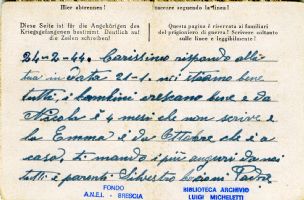 Hier abtrennen!
staccare seguendo la linea!
Diese Seite ist für die Angehörigen des
Kriegsgefangenen bestimmt. Deutlich auf
die Zeilen schreiben!
Questa pagina è riservata ai familiari
del prigioniero di guerra! Scrivere soltanto
sulle linee e leggibilmente!
24-2-44. Carissimo rispondo alla
tua in data 21-1. noi stiamo bene
tutti, i bambini crescano bene e da
Nicola è 4 mesi che non scrive e
la Emma è da Ottobre che è a
casa, ti mando i più auguri da noi
tutti e parenti Silvestro bacioni Padre
FONDO
A.N.E.I. - BRESCIA
BIBLIOTECA ARCHIVIO
LUIGI MICHELETTI